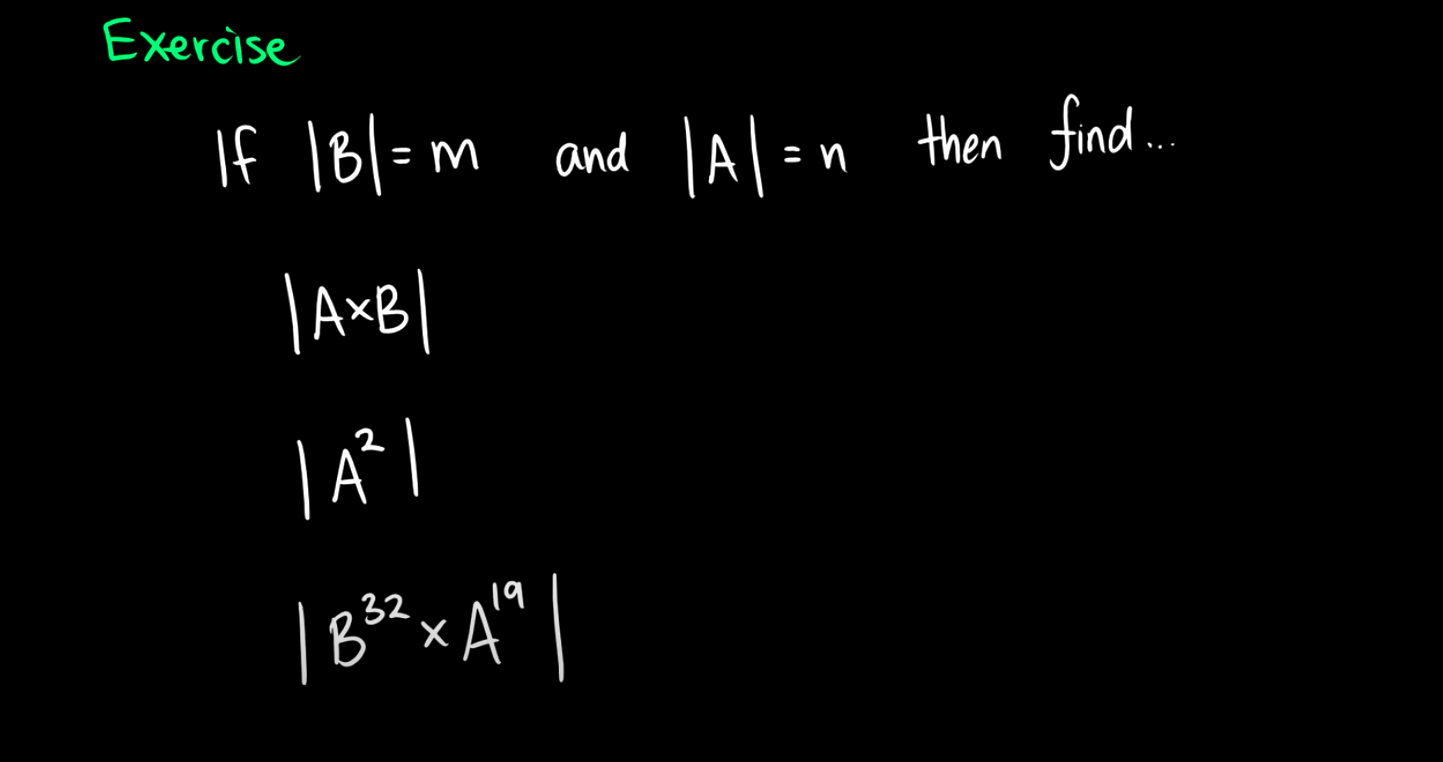 Exercise
If |B| = m and |A| = n then find...
|A×B|
|A²|
|B³² × A¹⁹|